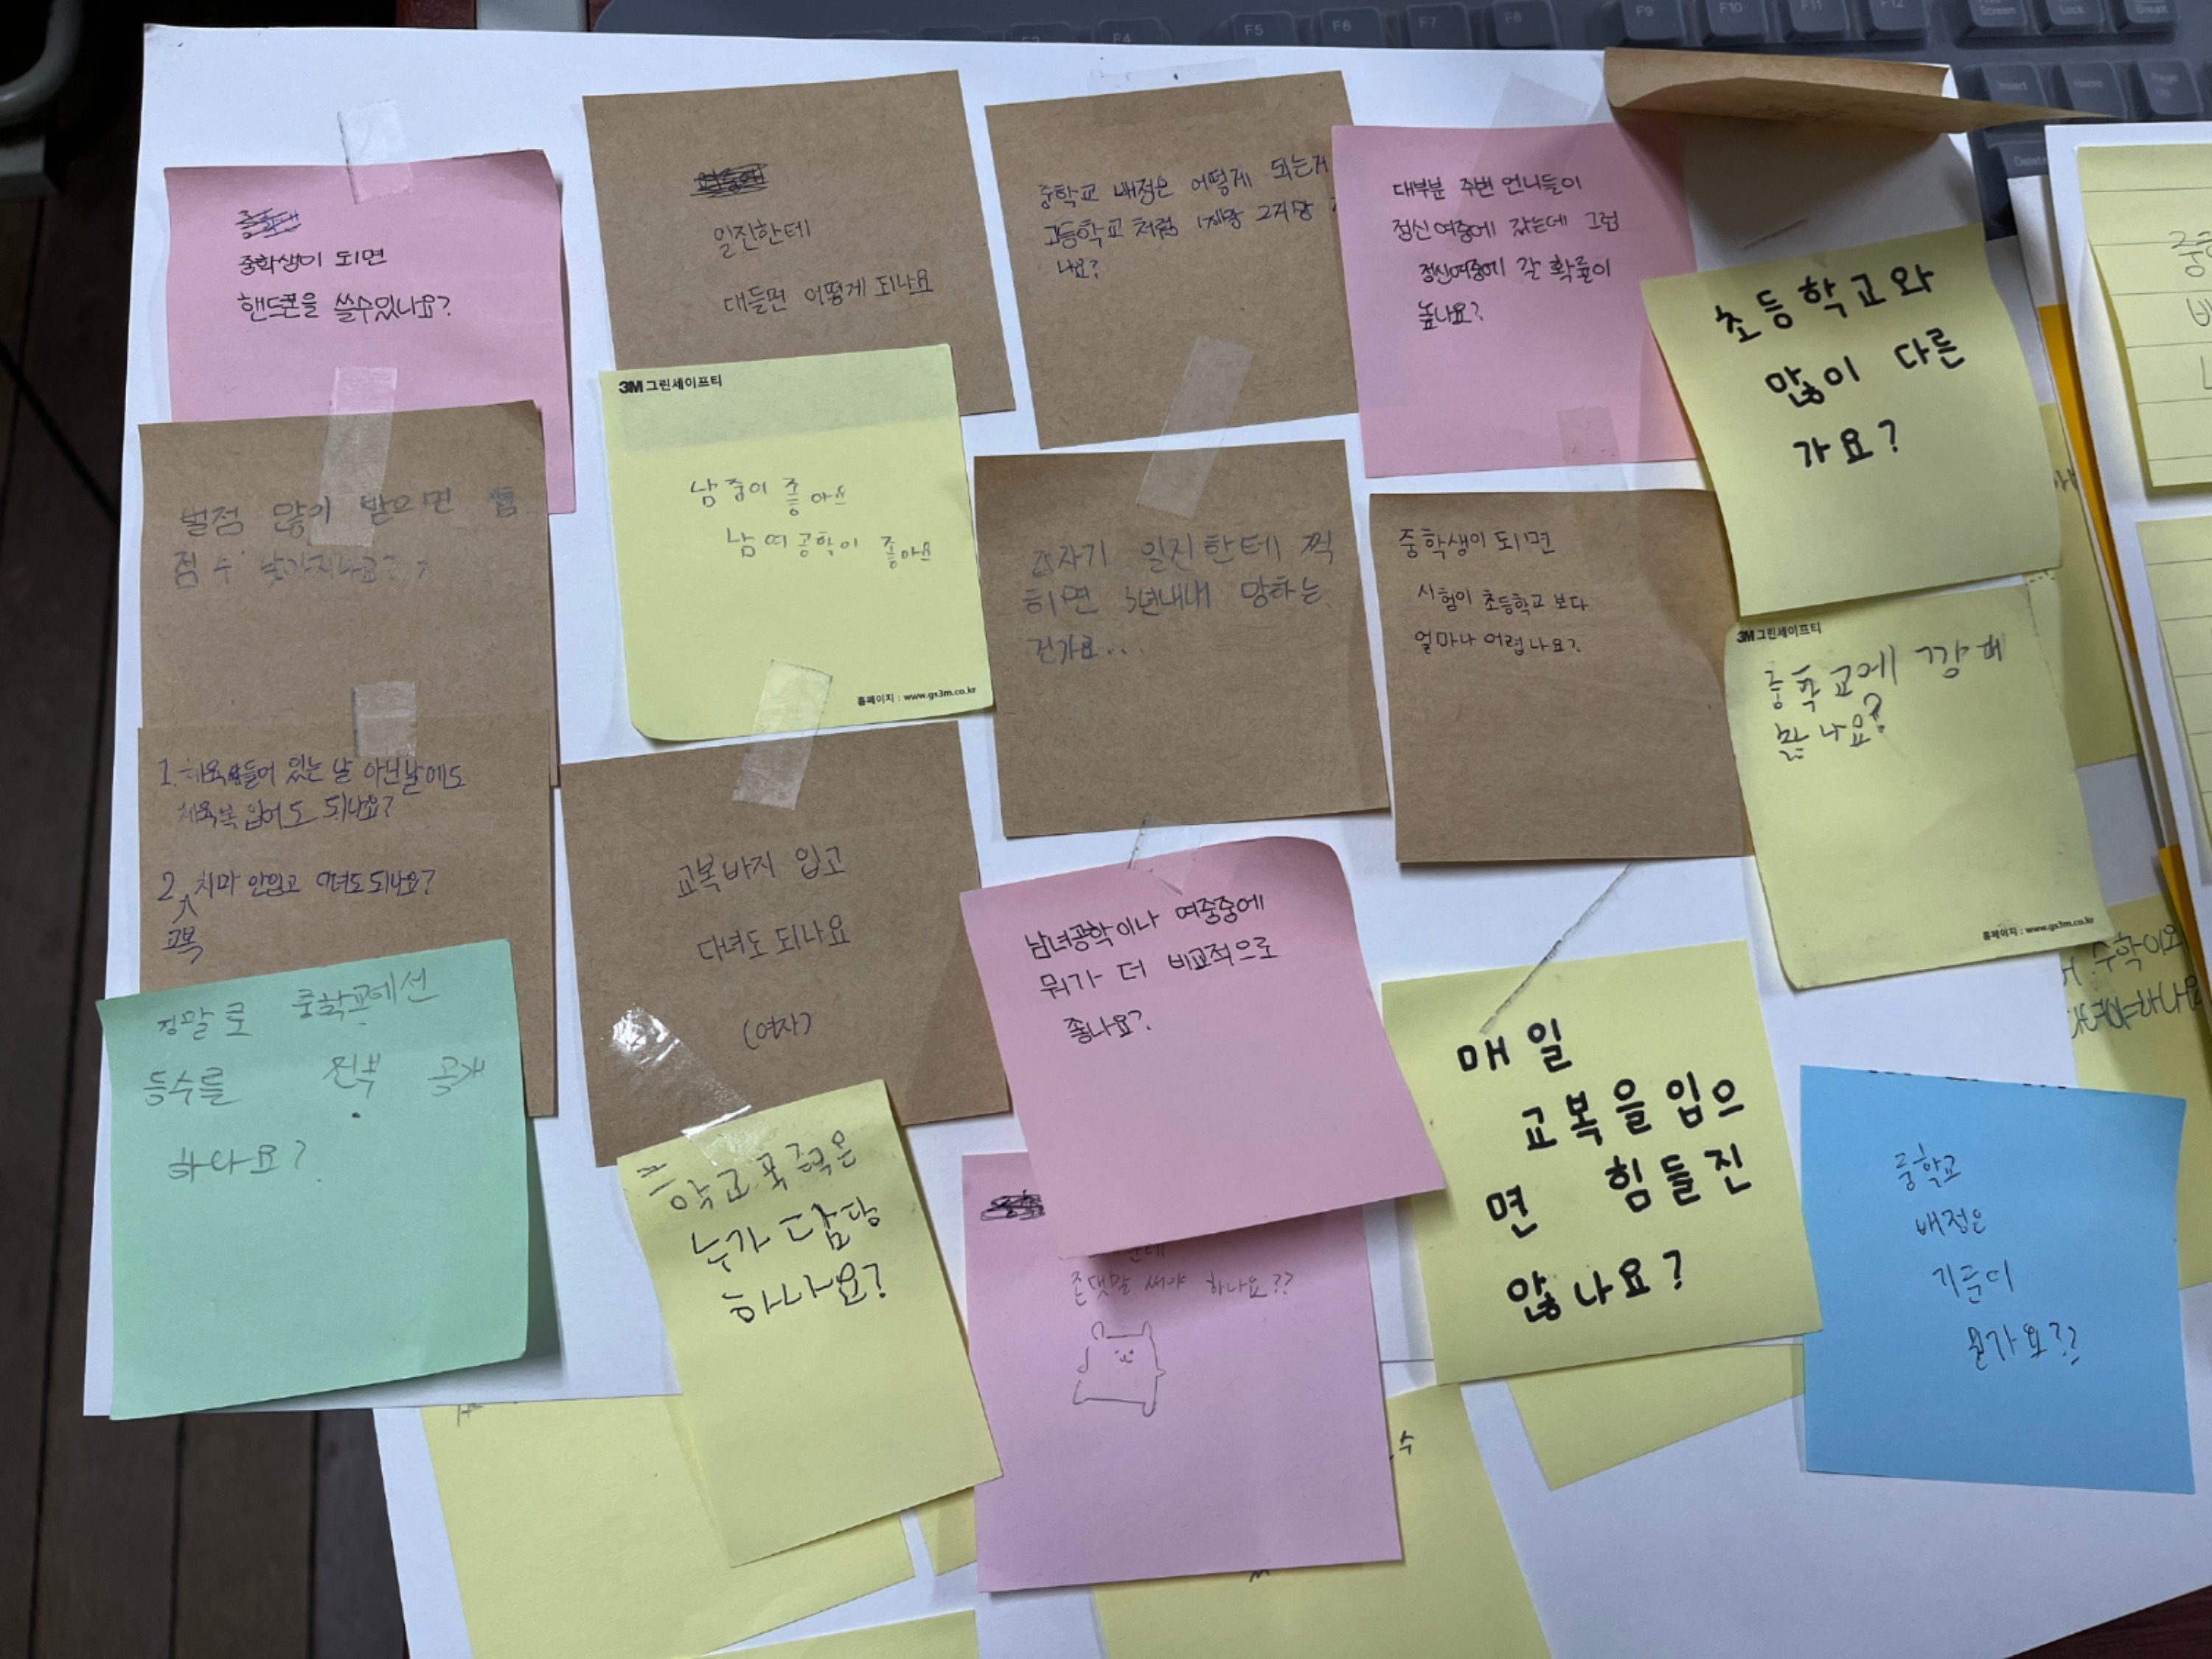 중학생이 되면
핸드폰을 쓸수있나요?
일진한테
대들면 어떻게 되나요
중학교 배정은 어떻게 되는거
고등학교 처럼 1지망 2지망
나요?
대부분 주변 언니들이
정신여중에 갔는데 그럼
정신여중에 갈 확률이
높나요?
초등학교와
많이 다른
가요?
벌점 많이 받으면
점수
3M 그린세이프티
남중이 좋아요
남여공학이 좋아요
홈페이지 : www.gs3m.co.kr
갑자기 일진한테 찍
히면 3년내내 망하는
건가요...
중학생이 되면
시험이 초등학교 보다
얼마나 어렵나요?
3M 그린세이프티
중학교에 깡패
많나요?
홈페이지 : www.gs3m.co.kr
1. 들어 있는 날 아닌날에도
체육복 입어도 되나요?
2. 치마 안입고 다녀도되나요?
교복
교복바지 입고
다녀도 되나요
(여자)
남녀공학이나 여중중에
뭐가 더 비교적으로
좋나요?
매일
교복을 입으
면 힘들진
않나요?
정말로 중학교에선
등수를 전부 공개
하나요?
학교폭력은
누가 담당
하나요?
존댓말 써야 하나요??
중학교
배정은
기준이
뭔가요??
수학이와